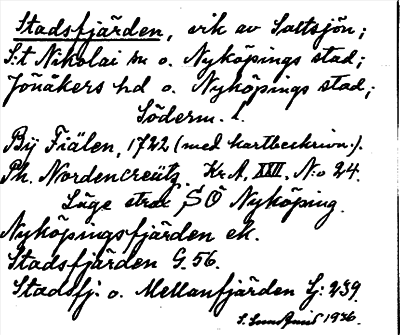 Stadsfjärden, vik av Saltsjön;
S:t Nikolai sn o. Nyköpings stad;
Jönåkers hd o. Nyköpings stad;
Söderm. l.
Bij Fiälen, 1722 (med kartbeskrivn.).
Ph. Nordencreütz, Kr. A. XXII. N:o 24.
Läge strax SÖ Nyköping.
Nyköpingsfjärden ek.
Stadsfjärden G. 56.
Stadsfj. o. Mellanfjärden Lj: 239.
1936.